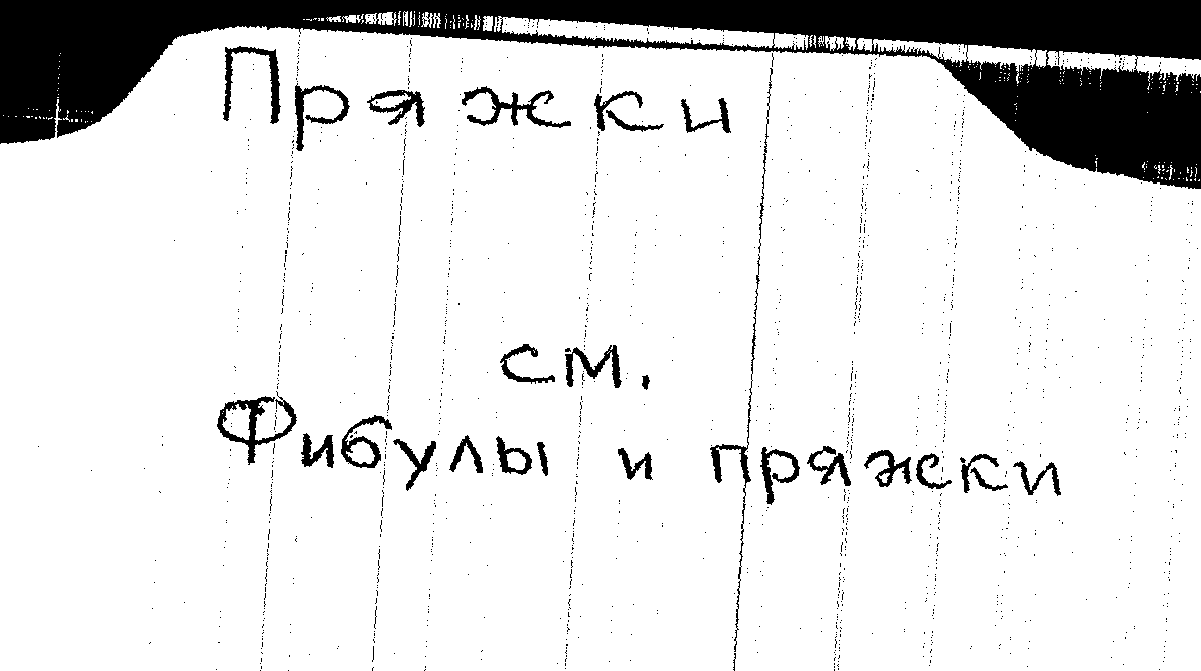 Пряжки
см.
Фибулы и пряжки